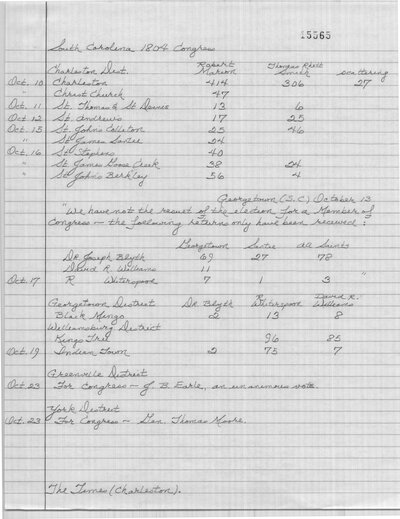 15565
South Carolina 1804 Congress
Charleston Dist. Robert Marion Thomas Rhett Smith scattering
Oct. 10 Charleston 414 306 27
Christ Church 47
Oct. 11 St. Thomas & St Dennis 13 6
Oct 12 St. Andrews 17 25
Oct. 15 St. Johns Colleton 25 46
" St. James Santee 24
Oct. 16 St. Stephens 40
" St. James Goose Creek 38 24
" St. John's Berkley 56 4
Georgetown (S.C.) October 13
"We have not the result of the election for a Member of
Congress — the following returns only have been received:
Georgetown Santee All Saints
Dr. Joseph Blyth 69 27 78
David R. Williams 11
Oct. 17 R Witherspoon 7 1 3 "
Georgetown District Dr Blyth R. Witherspoon David R. Williams
Black Mingo 2 13 8
Williamsburg District
Kings Tree 96 85
Oct. 19 Indian Town 2 75 7
Greenville District
Oct. 23 For Congress — J B Earle, an unanimous vote
York District
Oct. 23 For Congress — Gen. Thomas Moore.
The Times (Charleston).